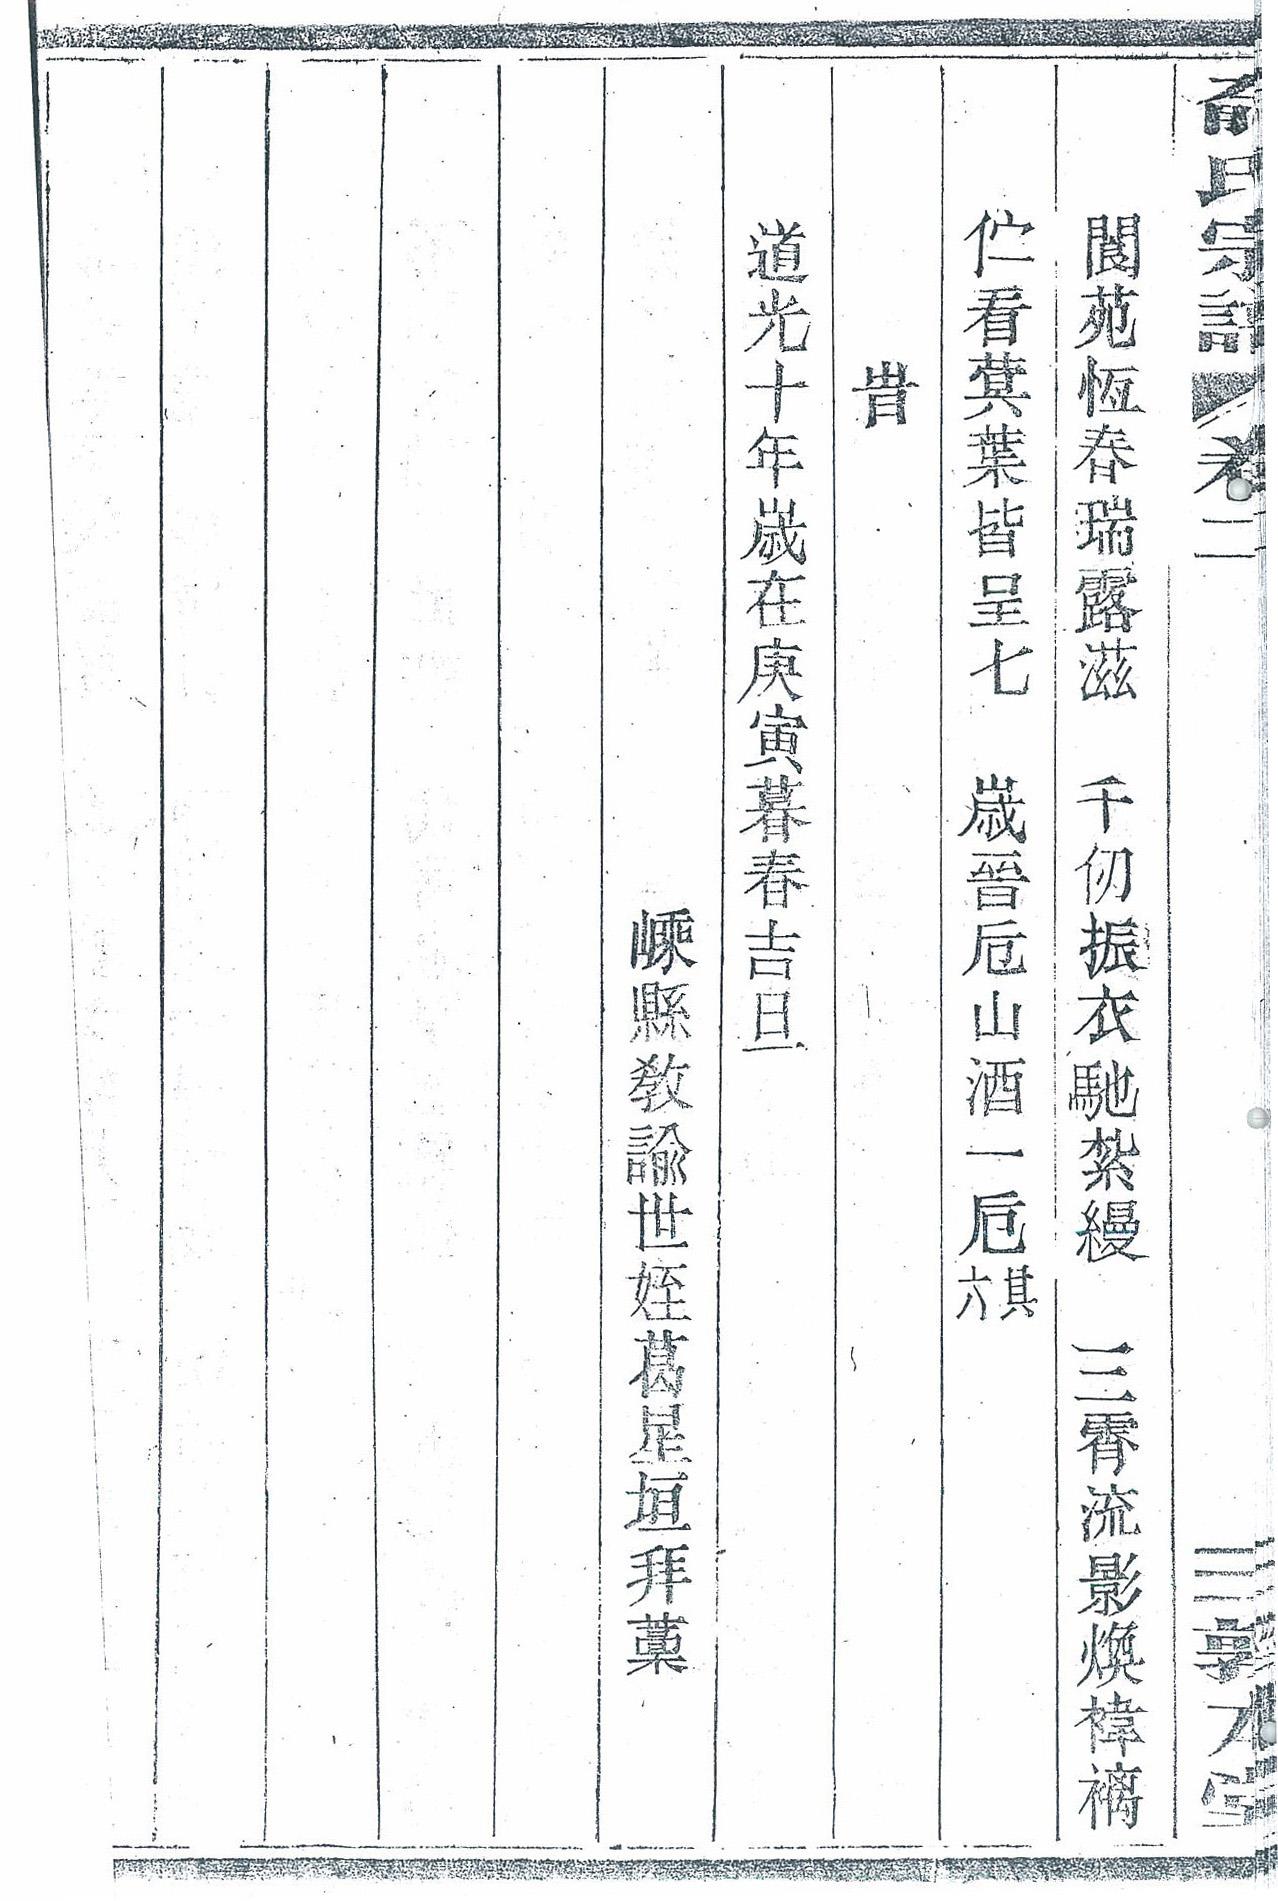 俞氏宗譜 卷二 三 敦本堂
閬苑恆春瑞露滋 千仞振衣馳紮縵 三霄流影煥褘褵
伫看蓂葉皆呈七 歲晉卮山酒一卮其六
旹
道光十年歲在庚寅暮春吉旦
嵊縣教諭世姪葛星垣拜藁